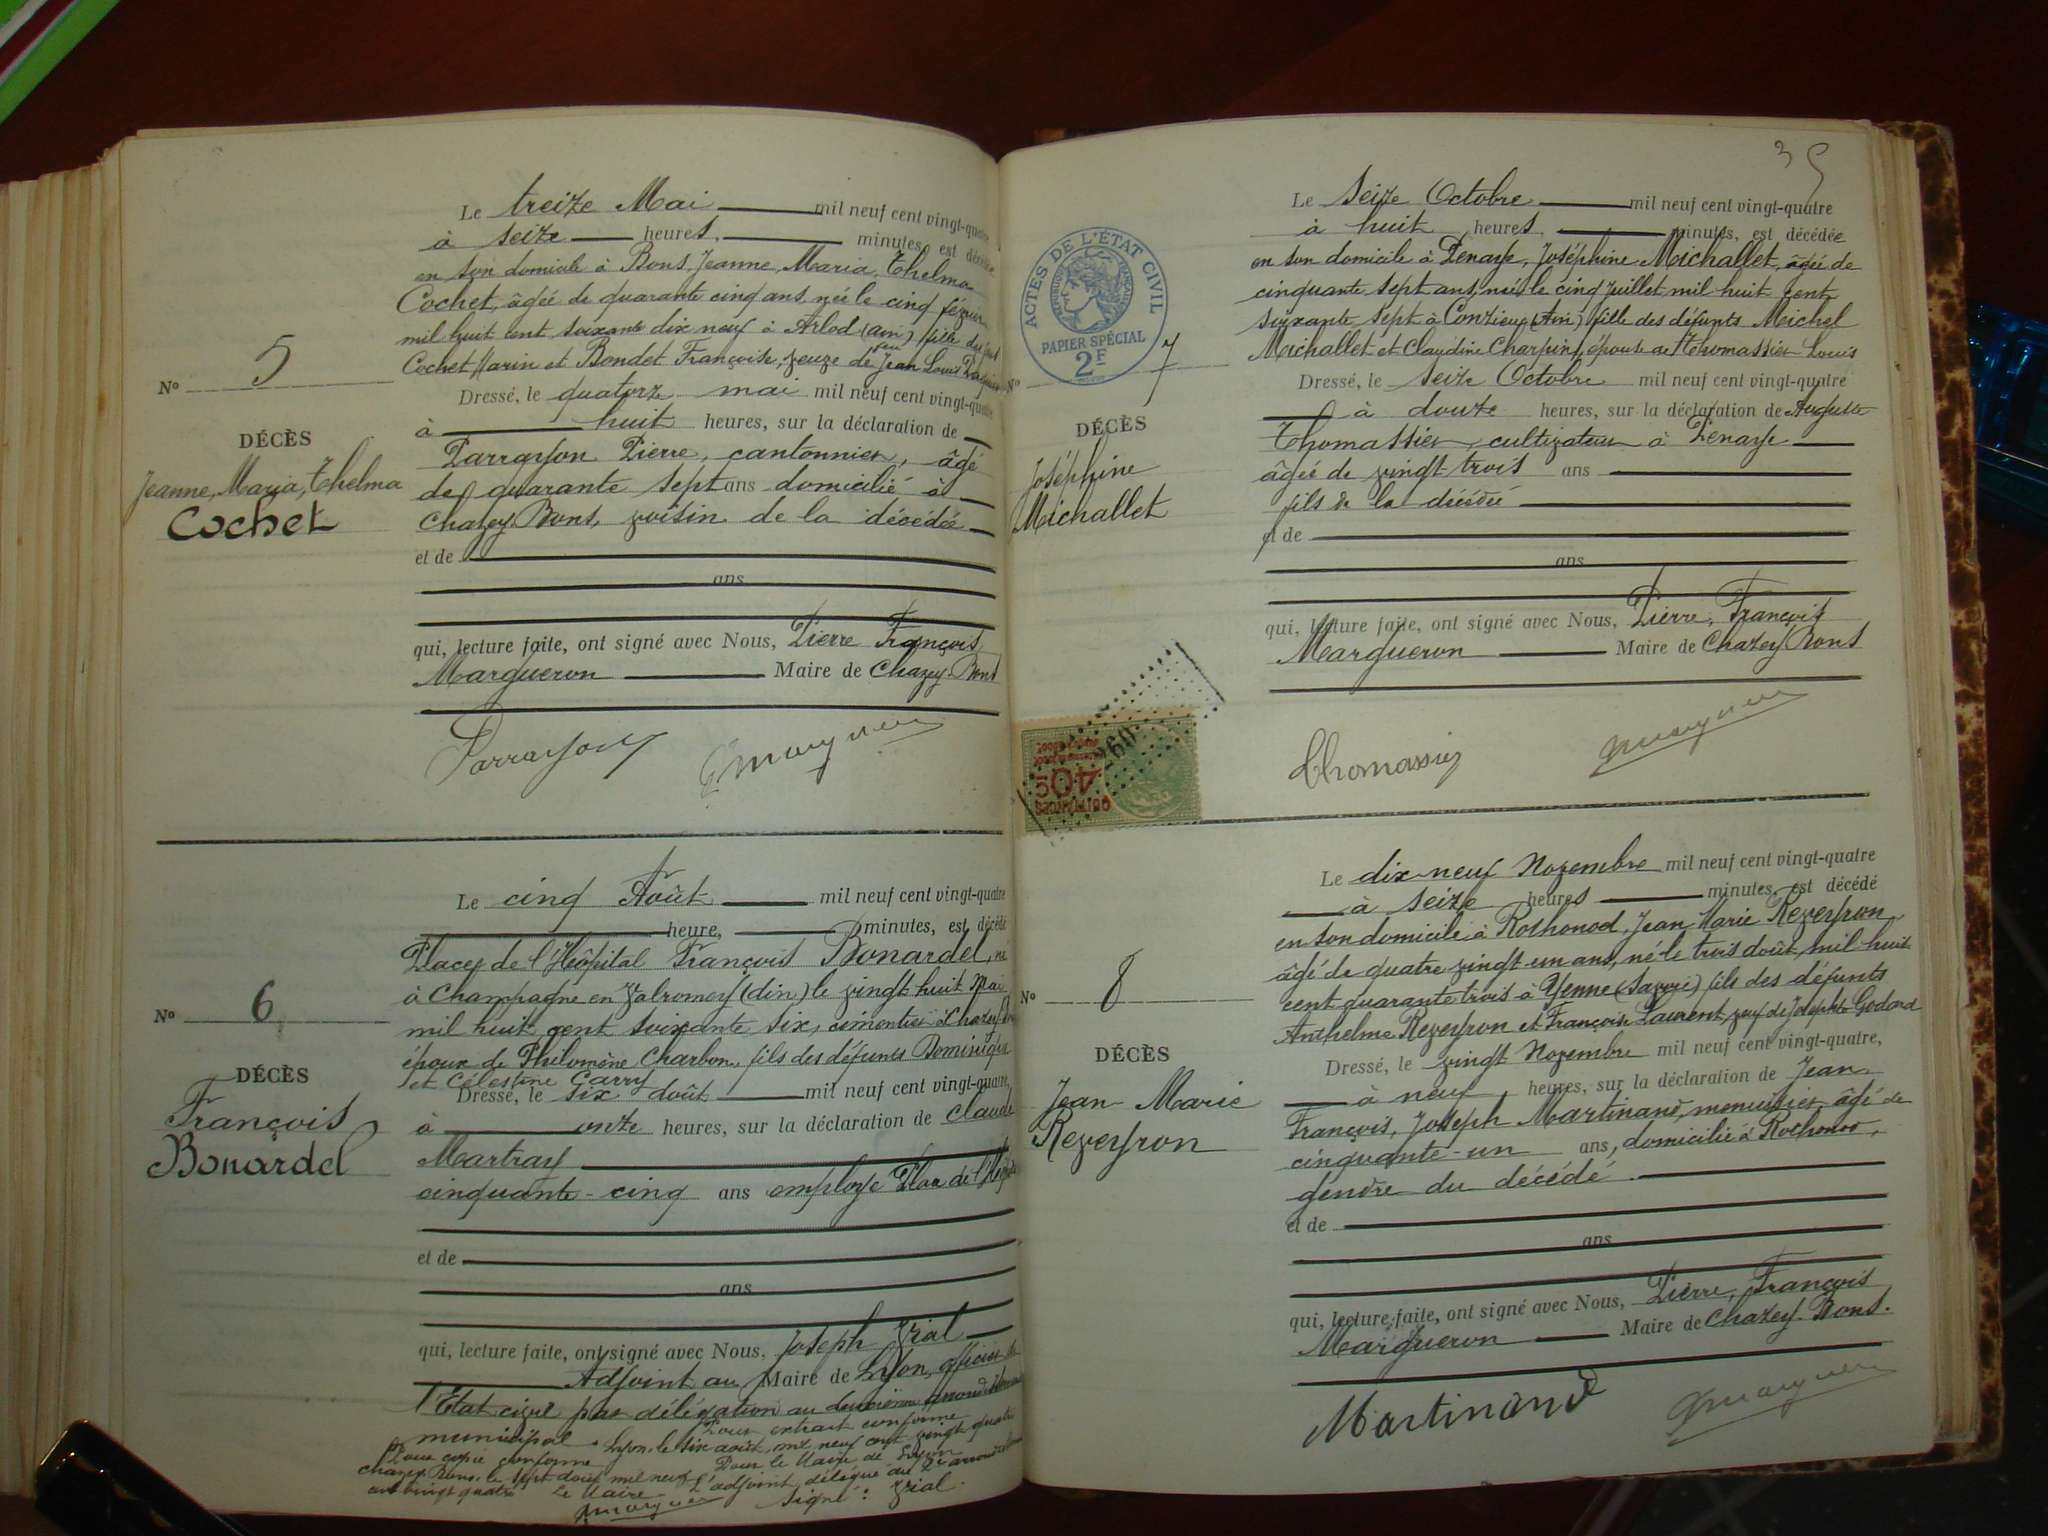 Le treize Mai mil neuf cent vingt-quatre
à seize heures, minutes, est décédée
en son domicile à Bons, Jeanne, Maria, Thelma
Cochet, âgée de quarante cinq ans, née le cinq février
mil huit cent soixante dix neuf à Arlod (Ain) fille de
Cochet Marin et Bondet Françoise, veuve de feu Jean Louis
N° 5
Dressé, le quatorze mai mil neuf cent vingt-quatre
à huit heures, sur la déclaration de
DÉCÈS
Parrayon Pierre, cantonnier, âgé
Jeanne, Maria, Thelma
de quarante sept ans domicilié à
Cochet
Chazey-Bons, voisin de la décédée
et de
ans
qui, lecture faite, ont signé avec Nous, Pierre François
Margueron Maire de Chazey-Bons
Parrayon
Le cinq Août mil neuf cent vingt-quatre
heure, minutes, est décédé
Place de l'Hôpital François Bonardel, né
à Champagne en Valromey (Ain) le vingt huit Mai
N° 6
mil huit cent soixante six, cimentier à Chazey-Bons
époux de Philomène Charbon, fils des défunts Dominique
et Célestine Carry
DÉCÈS
Dressé, le six Août mil neuf cent vingt-quatre,
François
à onze heures, sur la déclaration de Claude
Bonardel
Martray
cinquante-cinq ans employé Place de l'Hôpital
et de
ans
qui, lecture faite, ont signé avec Nous, Joseph Vial
Adjoint au Maire de Lyon, officier de
l'Etat civil par délégation au deuxième arrondissement
municipal. Pour extrait conforme
Lyon, le six août mil neuf cent vingt quatre
Pour copie conforme Pour le Maire de Lyon
Chazey-Bons, le sept Août mil neuf L'adjoint délégué du 2e arrond
cent vingt quatre Le Maire Signé : Vial.
35
Le seize Octobre mil neuf cent vingt-quatre
à huit heures, minutes, est décédée
en son domicile à Penaye, Joséphine Michallet, âgée de
cinquante sept ans, née le cinq Juillet mil huit cent
soixante sept à Contrevoz (Ain) fille des défunts Michel
Michallet et Claudine Charpin, épouse de Thomassier Louis
ACTES DE L'ÉTAT CIVIL
PAPIER SPÉCIAL
2F
N° 7
Dressé, le seize Octobre mil neuf cent vingt-quatre
à douze heures, sur la déclaration de Auguste
DÉCÈS
Thomassier, cultivateur à Penaye
Joséphine
âgé de vingt trois ans
Michallet
fils de la décédée
et de
ans
qui, lecture faite, ont signé avec Nous, Pierre, François
Margueron Maire de Chazey-Bons
40c
QUITTANCES
Thomassier
Le dix-neuf Novembre mil neuf cent vingt-quatre
à seize heures minutes, est décédé
en son domicile à Rothonod, Jean Marie Reveyron
âgé de quatre vingt un ans, né le trois Août, mil huit
N° 8
cent quarante trois à Yenne (Savoie) fils des défunts
Anthelme Reveyron et Françoise Laurent, veuf de Josephte Godard
DÉCÈS
Dressé, le vingt Novembre mil neuf cent vingt-quatre,
Jean-Marie
à neuf heures, sur la déclaration de Jean
Reveyron
François, Joseph Martinand, menuisier, âgé de
cinquante-un ans, domicilié à Rothonod,
gendre du décédé.
et de
ans
qui, lecture faite, ont signé avec Nous, Pierre, François
Margueron Maire de Chazey-Bons.
Martinand